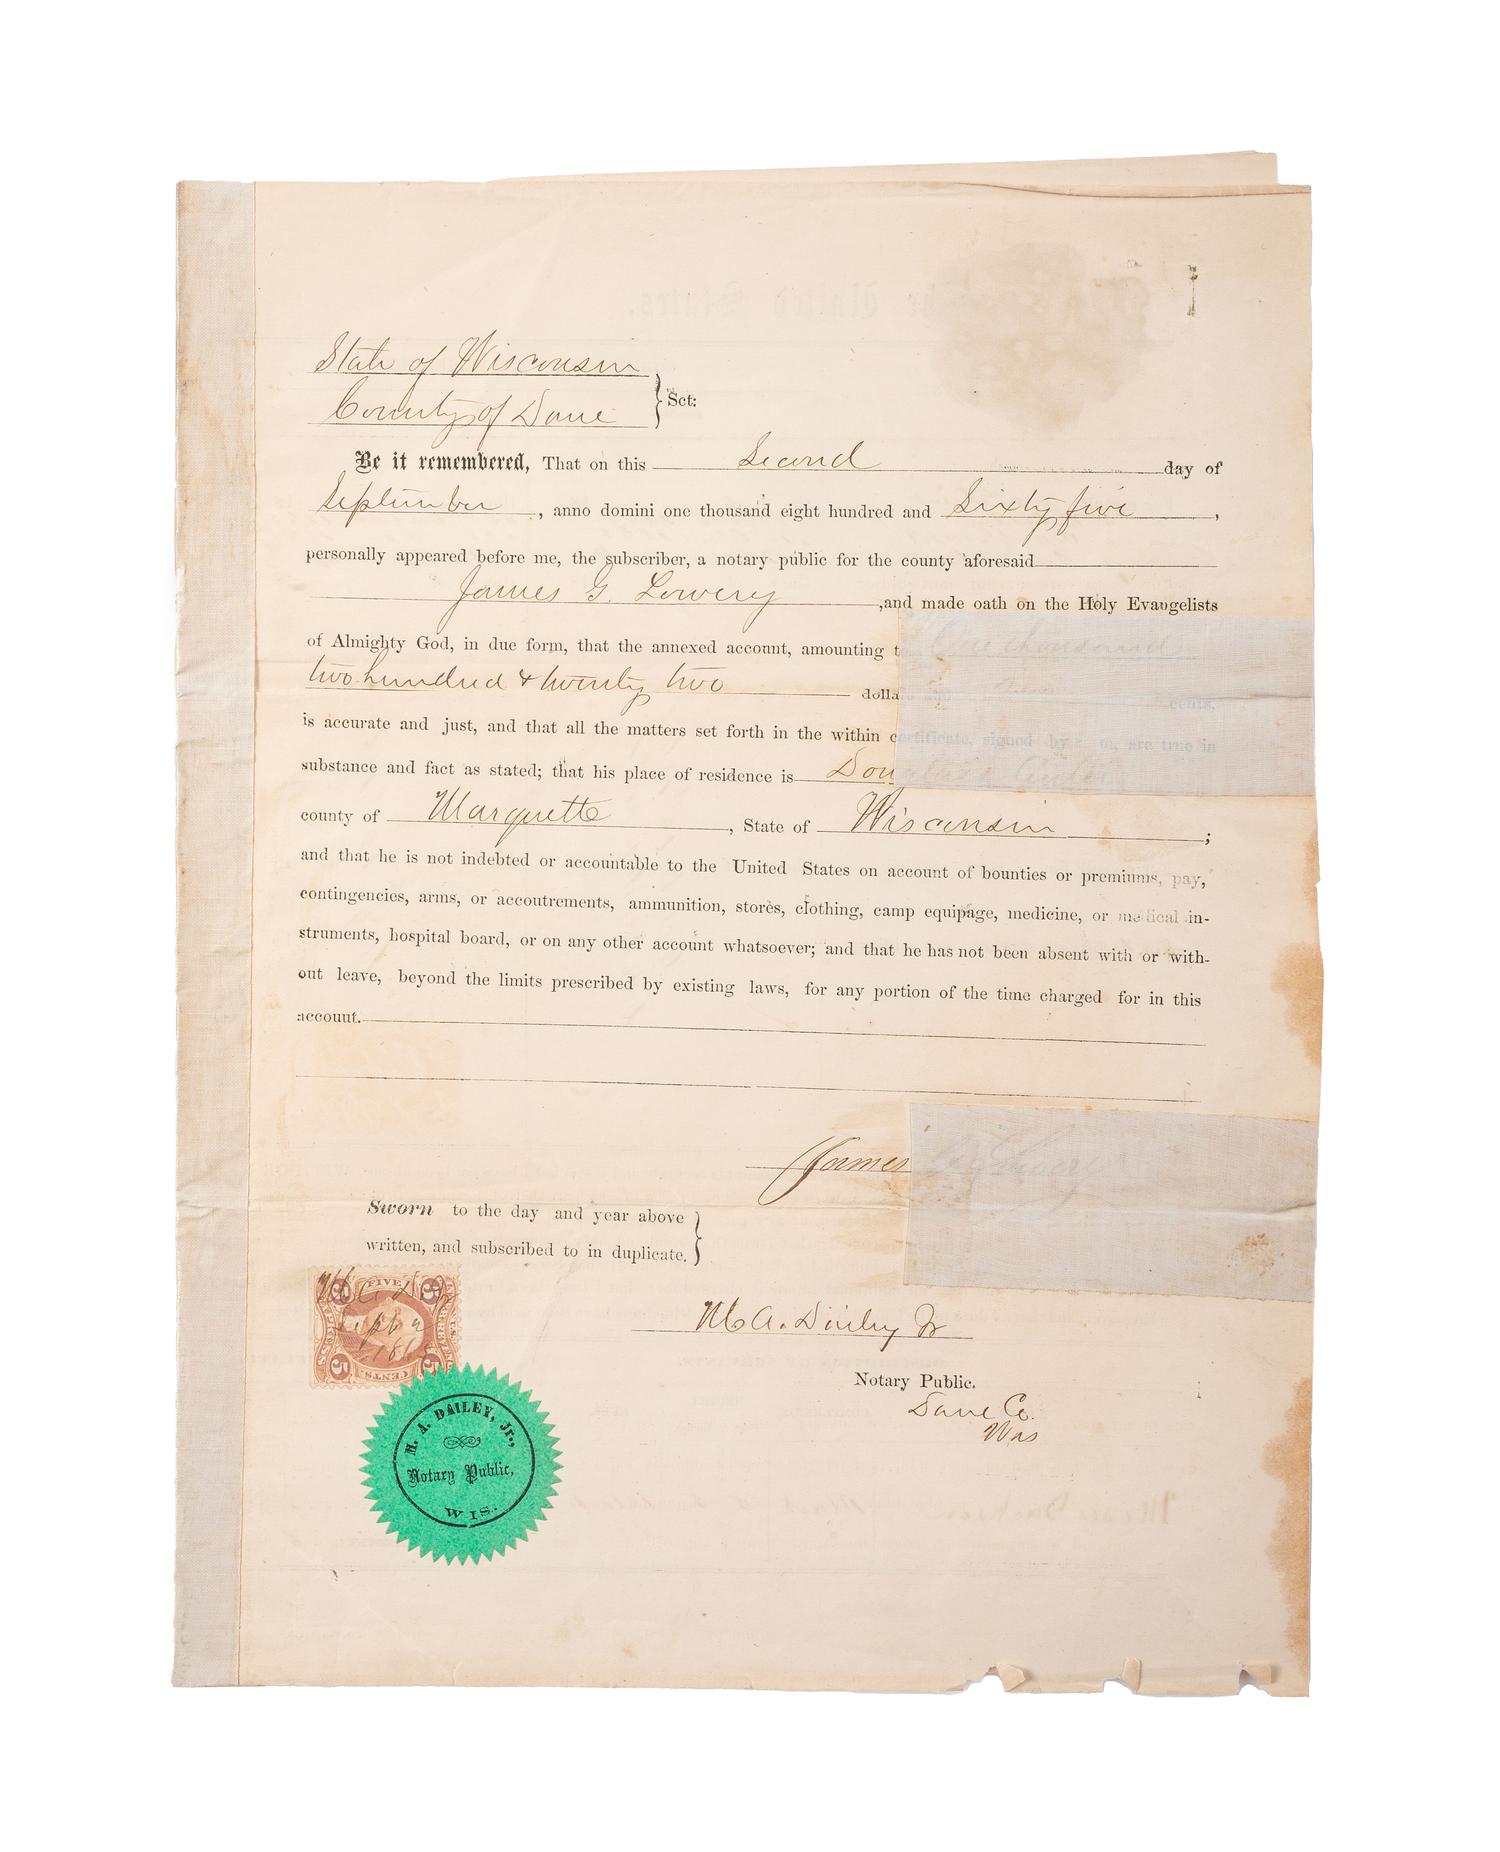 State of Wisconsin
County of Dane } Sct:
Be it remembered, That on this Second day of
September, anno domini one thousand eight hundred and Sixty five,
personally appeared before me, the subscriber, a notary public for the county aforesaid
James G. Lowery, and made oath on the Holy Evangelists
of Almighty God, in due form, that the annexed account, amounting to One thousand
two hundred & twenty two dollars and cents,
is accurate and just, and that all the matters set forth in the within certificate, signed by him, are true in
substance and fact as stated; that his place of residence is Douglass Center
county of Marquette, State of Wisconsin;
and that he is not indebted or accountable to the United States on account of bounties or premiums, pay,
contingencies, arms, or accoutrements, ammunition, stores, clothing, camp equipage, medicine, or medical in-
struments, hospital board, or on any other account whatsoever; and that he has not been absent with or with-
out leave, beyond the limits prescribed by existing laws, for any portion of the time charged for in this
account.
James G. Lowery
Sworn to the day and year above
written, and subscribed to in duplicate. }
M. A. Dailey Jr
Notary Public.
Dane Co.
Wis
FIVE
5 5
CENTS.
5 5
Sept 2
1865
M. A. DAILEY, Jr.,
Notary Public,
WIS.